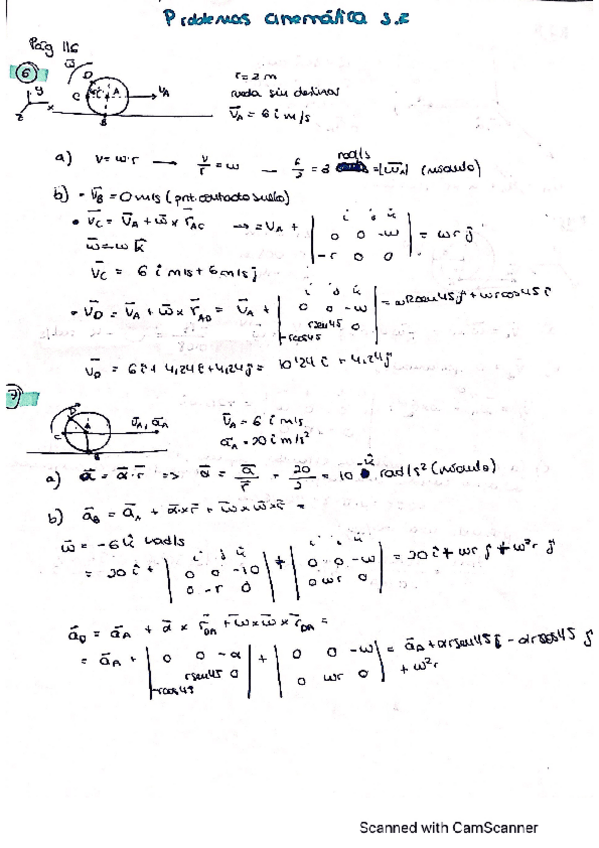 Problemas cinemática S.R
Pág 116
6
r = 2 m
rueda sin deslizar
v̄A = 6 i m/s
a) v = w·r → v/r = w — 6/2 = 3 rad/s = |w̄A| (módulo)
b) - v̄B = 0 m/s (pnt. contacto suelo)
• v̄C = v̄A + w̄ × r̄AC → = vA + | i j k ; 0 0 -w ; -r 0 0 | = wr j
w̄ = -w k̂
v̄C = 6 i m/s + 6 m/s j
- v̄D = v̄A + w̄ × r̄AD = v̄A + | i j k ; 0 0 -w ; -rcos45 rsen45 0 | = wRsen45 j + wrcos45 i
v̄D = 6 i + 4,24 i + 4,24 j = 10'24 i + 4,24 j
7
v̄A, āA
v̄A = 6 i m/s
āA = 20 i m/s²
a) ā = ᾱ · r̄ => ᾱ = ā/r̄ = 20/2 = 10 -k̂ rad/s² (módulo)
b) āB = āA + ᾱ × r̄ + w̄ × w̄ × r̄ =
w̄ = -6 k̂ rad/s
= 20 i + | i j k ; 0 0 -10 ; 0 -r 0 | + | i j k ; 0 0 -w ; 0 wr 0 | = 20 i + wr j + w²r j
āD = āA + ᾱ × r̄DA + w̄ × w̄ × r̄DA =
= āA + | 0 0 -α ; -rcos45 rsen45 0 | + | 0 0 -w ; 0 wr 0 | = āA + αrsen45 i - αrcos45 j + w²r
Scanned with CamScanner